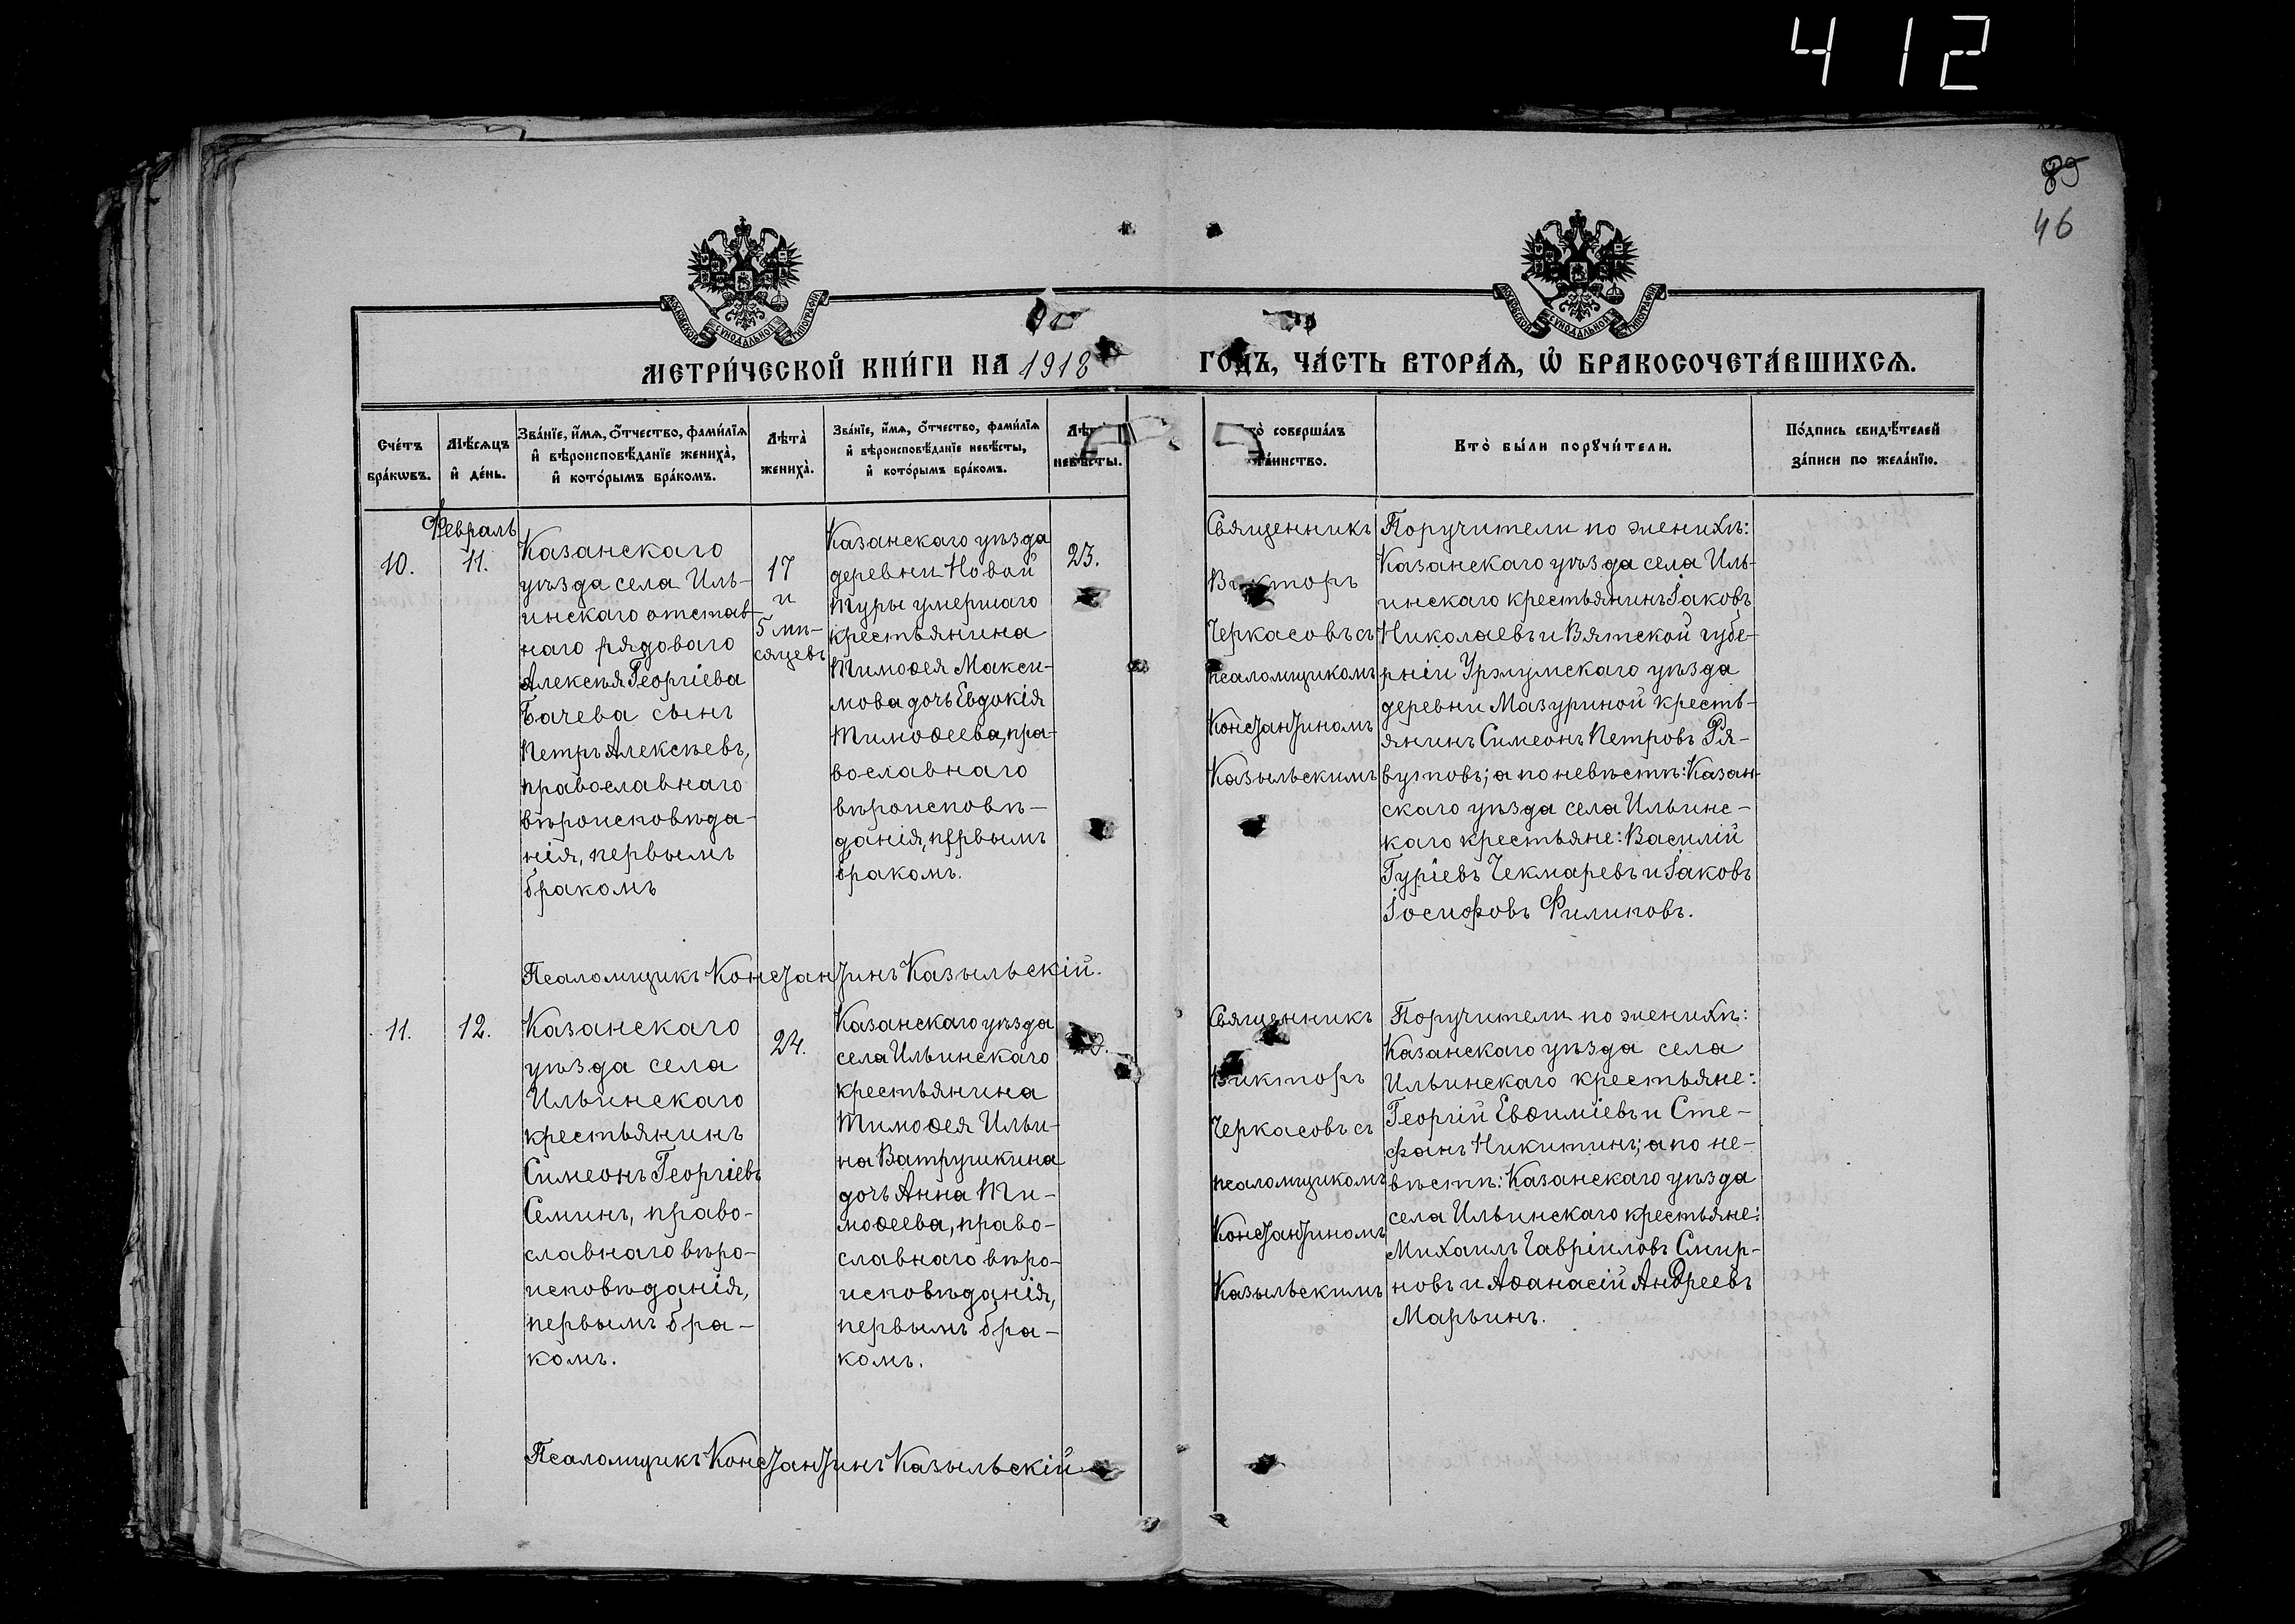 412
89
46
МОСКОВСКОЙ СУНОДАЛЬНОЙ ТИПОГРАФІИ
МОСКОВСКОЙ СУНОДАЛЬНОЙ ТИПОГРАФІИ
МЕТРИ́ЧЕСКОЙ КНИ́ГИ НА 1918 ГОДЪ, ЧА́СТЬ ВТОРА́Я, Ѡ БРАКОСОЧЕТА́ВШИХСЯ.
Сче́тъ
бра́кѡвъ.
Мѣ́сяцъ
и҆ де́нь.
Зва́нїе, и҆́мя, о҆́тчество, фами́лїя
и҆ вѣроисповѣ́данїе жениха̀,
и҆ кото́рымъ бра́комъ.
Лѣта̀
жениха̀.
Зва́нїе, и҆́мя, о҆́тчество, фами́лїя
и҆ вѣроисповѣ́данїе невѣ́сты,
и҆ кото́рымъ бра́комъ.
Лѣта̀
невѣ́сты.
Кто̀ соверша́лъ
та́инство.
Кто̀ бы́ли порꙋчи́тели.
По́дпись свидѣ́телей
за́писи по жела́нїю.
Февраль
10.
11.
Казанскаго
уѣзда села Иль-
инскаго отстав-
наго рядоваго
Алексѣя Георгіева
Бачева сынъ
Петръ Алексѣевъ,
православнаго
вѣроисповѣда-
нія, первымъ
бракомъ
17
и
5 мѣ-
сяцевъ
Казанскаго уѣзда
деревни Новой
Туры умершаго
крестьянина
Тимоѳея Макси-
мова дочь Евдокія
Тимоѳеева, пра-
вославнаго
вѣроисповѣ-
данія, первымъ
бракомъ.
23.
Священникъ
Викторъ
Черкасовъ съ
псаломщикомъ
Константиномъ
Казыльскимъ
Поручители по женихѣ:
Казанскаго уѣзда села Иль-
инскаго крестьянинъ Іаковъ
Николаевъ и Вятской губе-
рніи Уржумскаго уѣзда
деревни Мазуриной кресть-
янинъ Симеонъ Петровъ Ря-
бухговъ; а по невѣстѣ: Казан-
скаго уѣзда села Ильинс-
каго крестьяне: Василій
Гуріевъ Чекмаревъ и Іаковъ
Іосифовъ Филиповъ.
Псаломщикъ Константинъ Казыльскій.
11.
12.
Казанскаго
уѣзда села
Ильинскаго
крестьянинъ
Симеонъ Георгіевъ
Семинъ, право-
славнаго вѣро-
исповѣданія,
первымъ бра-
комъ.
24.
Казанскаго уѣзда
села Ильинскаго
крестьянина
Тимоѳея Ильи-
на Ватрушкина
дочь Анна Ти-
моѳеева, право-
славнаго вѣро-
исповѣданія,
первымъ бра-
комъ.
Священникъ
Викторъ
Черкасовъ съ
псаломщикомъ
Константиномъ
Казыльскимъ
Поручители по женихѣ:
Казанскаго уѣзда села
Ильинскаго крестьяне:
Георгій Евѳиміевъ и Сте-
фанъ Никитинъ; а по не-
вѣстѣ: Казанскаго уѣзда
села Ильинскаго крестьяне:
Михаилъ Гавріиловъ Смир-
новъ и Аѳанасій Андреевъ
Марьинъ.
Псаломщикъ Константинъ Казыльскій